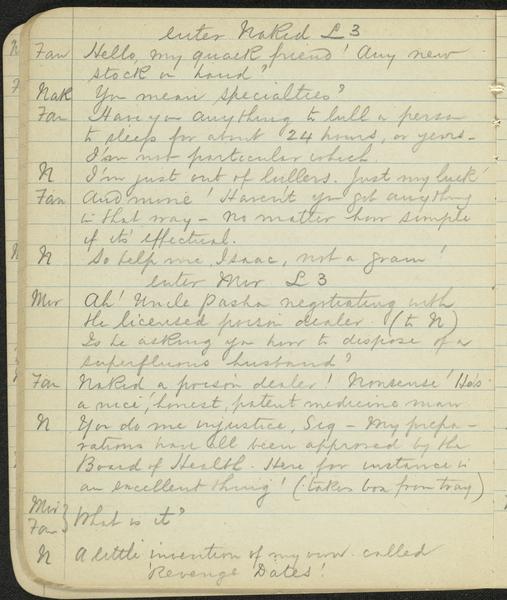 enter Naked L 3
Fan Hello, my quack friend! Any new
stock on hand?
Nak You mean specialties?
Fan Have you anything to lull a person
to sleep for about 24 hours, or years -
I'm not particular which.
N I'm just out of lullers. Just my luck!
Fan And mine! Haven't you got anything
in that way - no matter how simple
if its effectual.
N So help me, Isaac, not a grain!
enter Mir L 3
Mir Ah! Uncle Pasha negotiating with
the licensed poison dealer. (to N)
Is he asking you how to dispose of a
superfluous husband?
Fan Naked a poison dealer! Nonsense! He's
a nice, honest, patent medicine man
N You do me injustice, Sig - My prepa-
rations have all been approved by the
Board of Health. Here for instance is
an excellent thing! (takes box from tray)
Mir
Fan } What is it?
N A little invention of my own called
'Revenge Dates'!